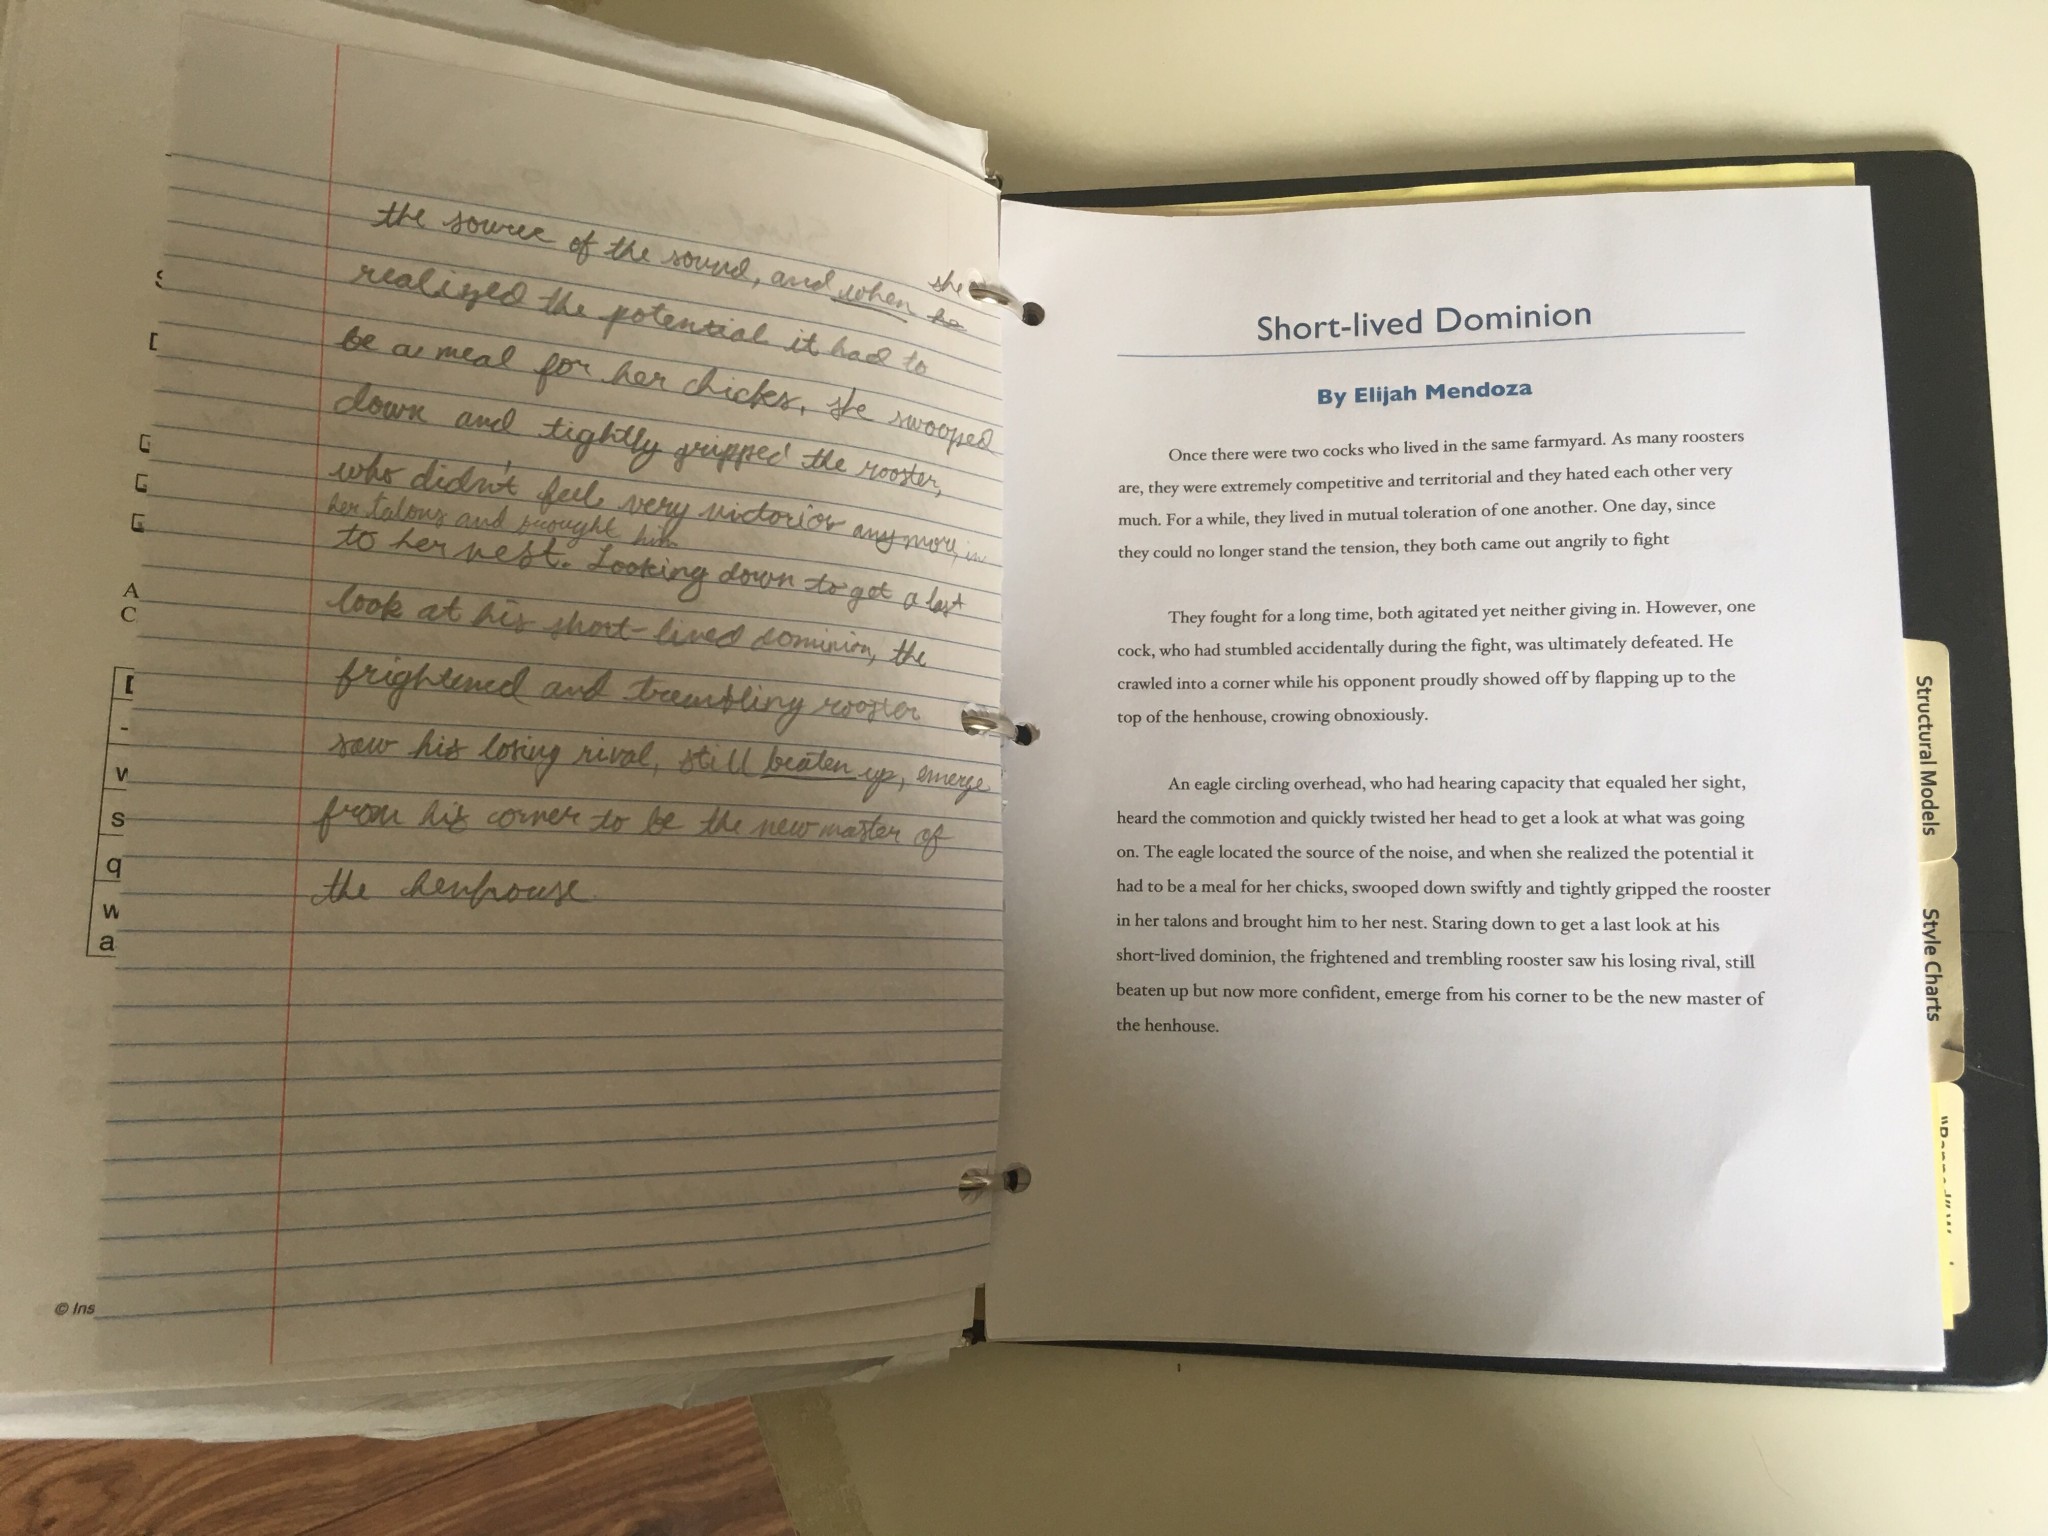 the source of the sound, and when he she
realized the potential it had to
be a meal for her chicks, she swooped
down and tightly gripped the rooster,
who didn't feel very victorior anymore, in
her talons and brought him
to her nest. Looking down to get a last
look at his short-lived dominion, the
frightened and trembling rooster
saw his losing rival, still beaten up, emerge
from his corner to be the new master of
the henhouse
A
C
-
v
s
q
w
a
© Ins
Short-lived Dominion
By Elijah Mendoza
Once there were two cocks who lived in the same farmyard. As many roosters
are, they were extremely competitive and territorial and they hated each other very
much. For a while, they lived in mutual toleration of one another. One day, since
they could no longer stand the tension, they both came out angrily to fight
They fought for a long time, both agitated yet neither giving in. However, one
cock, who had stumbled accidentally during the fight, was ultimately defeated. He
crawled into a corner while his opponent proudly showed off by flapping up to the
top of the henhouse, crowing obnoxiously.
An eagle circling overhead, who had hearing capacity that equaled her sight,
heard the commotion and quickly twisted her head to get a look at what was going
on. The eagle located the source of the noise, and when she realized the potential it
had to be a meal for her chicks, swooped down swiftly and tightly gripped the rooster
in her talons and brought him to her nest. Staring down to get a last look at his
short-lived dominion, the frightened and trembling rooster saw his losing rival, still
beaten up but now more confident, emerge from his corner to be the new master of
the henhouse.
Structural Models
Style Charts